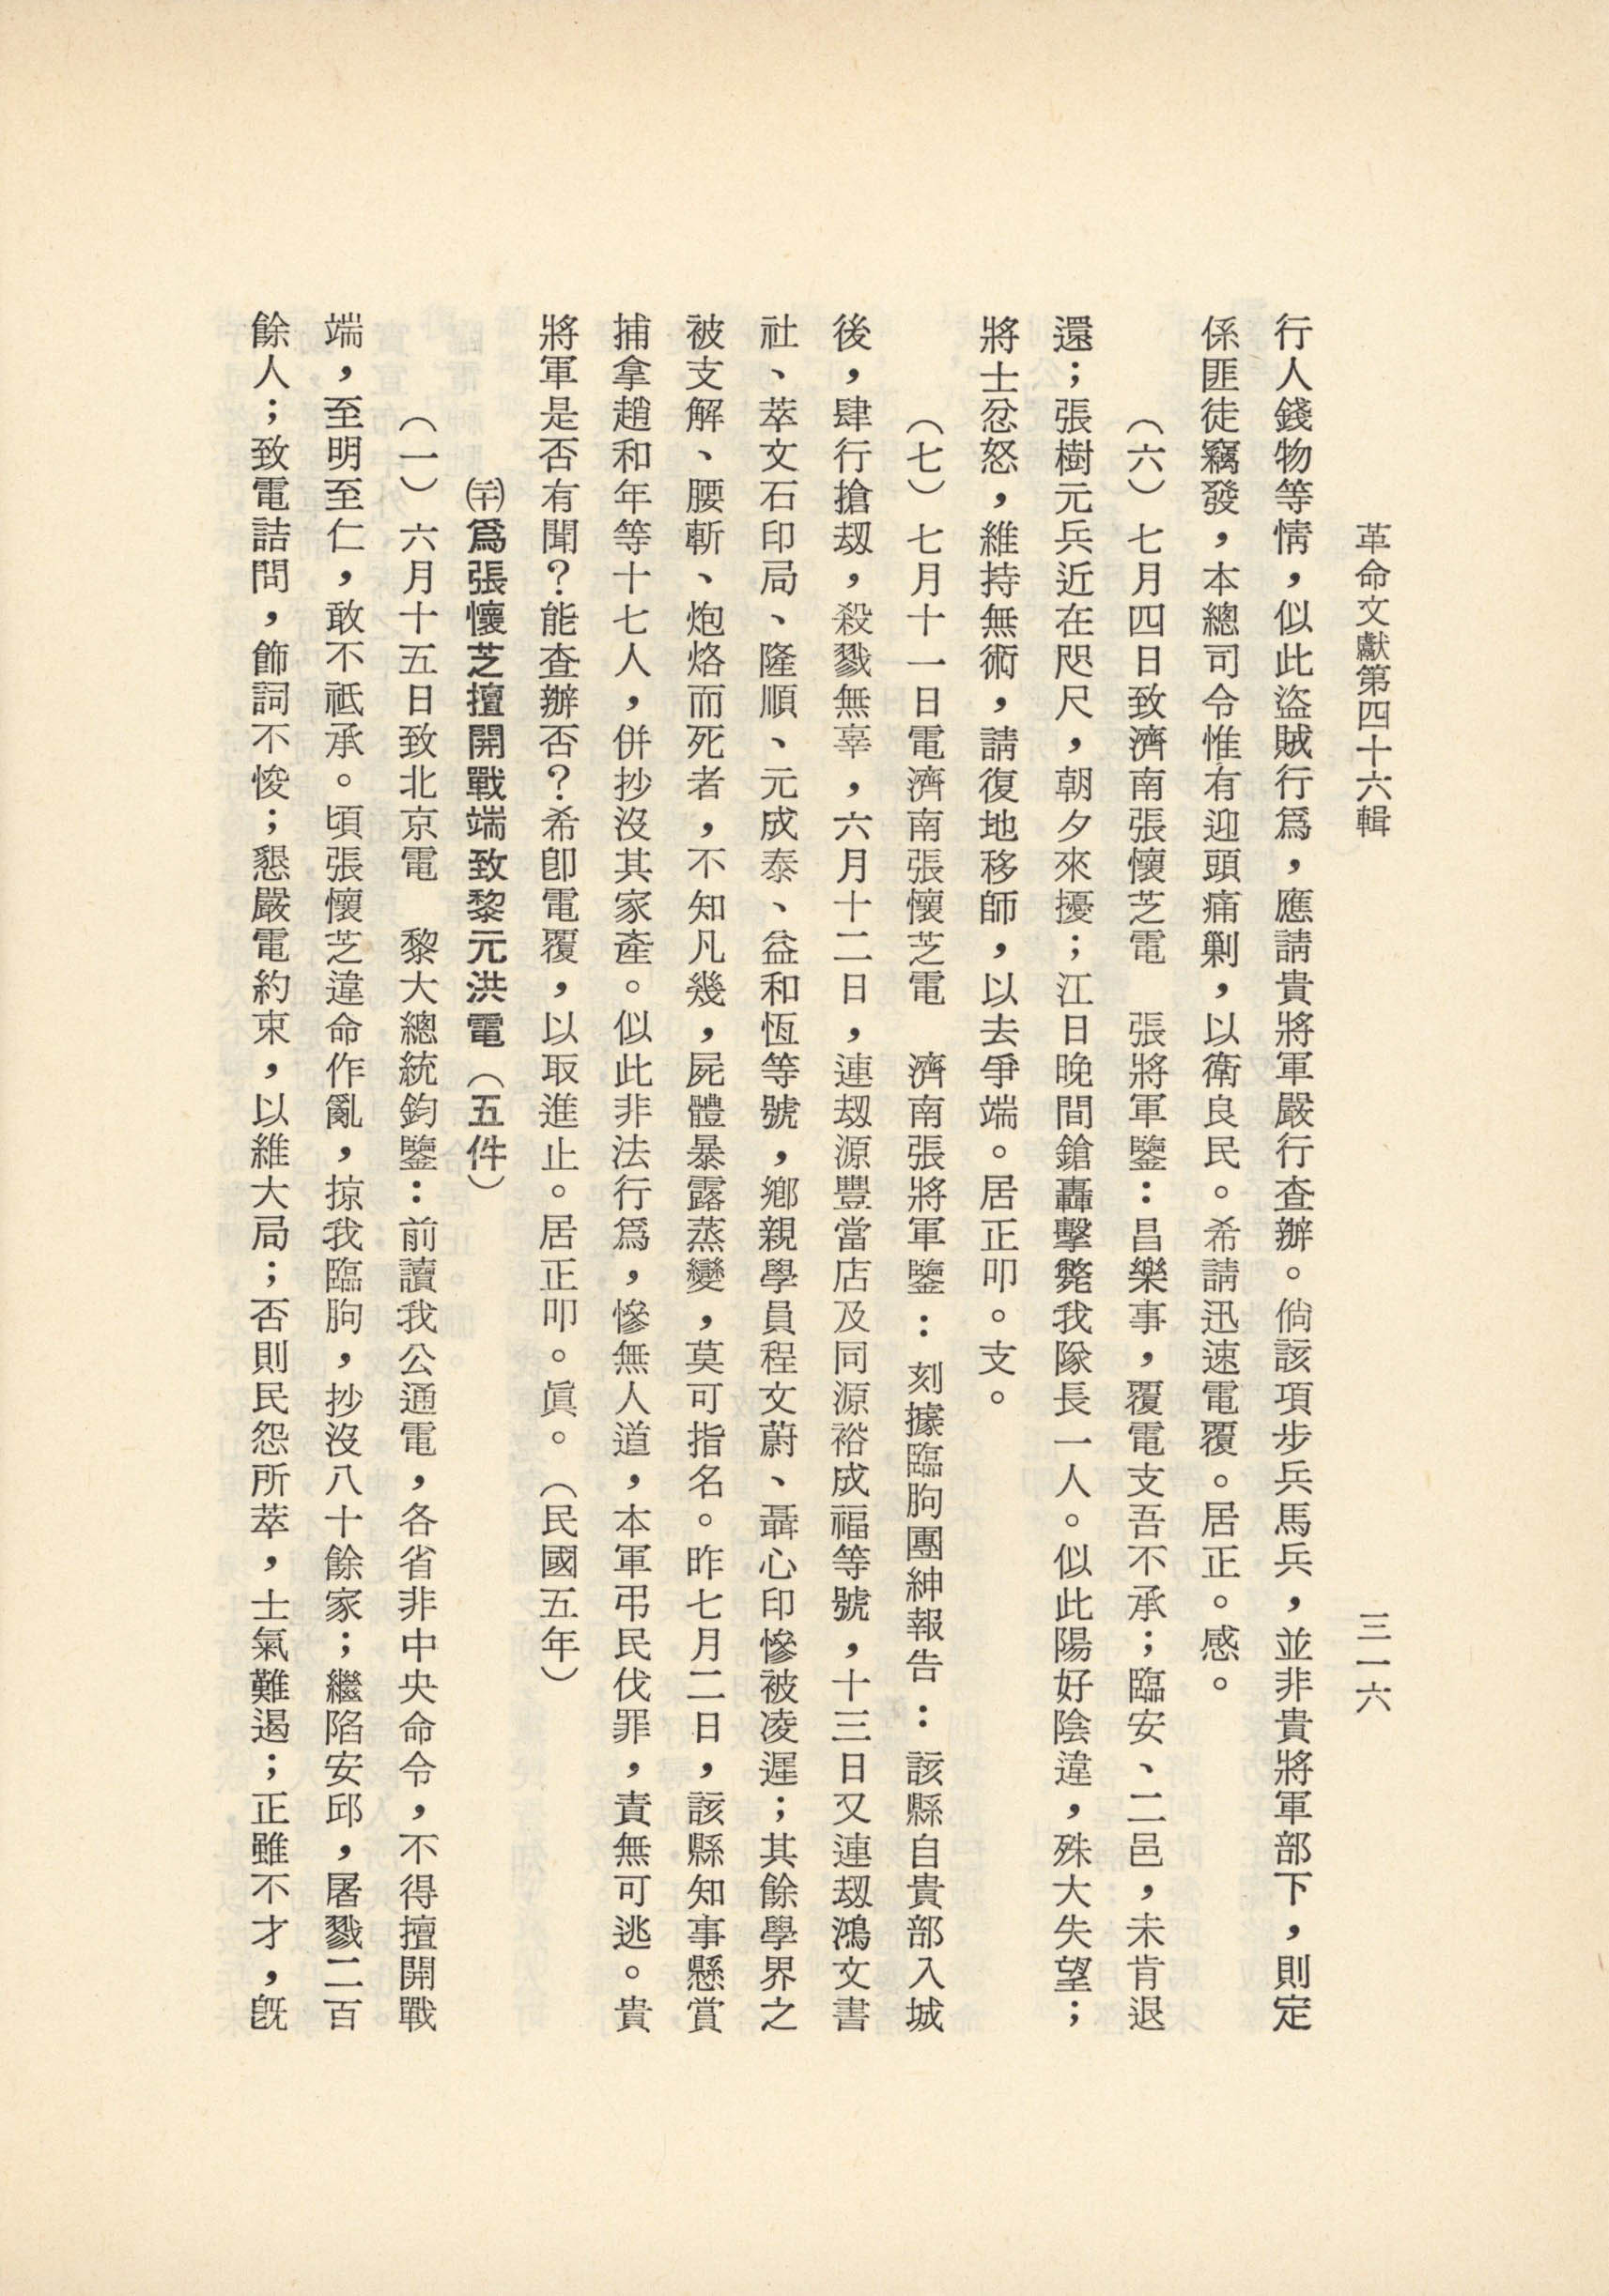 革命文獻第四十六輯
三一六
行人錢物等情，似此盜賊行爲，應請貴將軍嚴行查辦。倘該項步兵馬兵，並非貴將軍部下，則定
係匪徒竊發，本總司令惟有迎頭痛剿，以衛良民。希請迅速電覆。居正。感。
（六）七月四日致濟南張懷芝電　張將軍鑒：昌樂事，覆電支吾不承；臨安、二邑，未肯退
還；張樹元兵近在咫尺，朝夕來擾；江日晚間鎗轟擊斃我隊長一人。似此陽好陰違，殊大失望；
將士忿怒，維持無術，請復地移師，以去爭端。居正叩。支。
（七）七月十一日電濟南張懷芝電　濟南張將軍鑒：刻據臨朐團紳報告：該縣自貴部入城
後，肆行搶刼，殺戮無辜，六月十二日，連刼源豐當店及同源裕成福等號，十三日又連刼鴻文書
社、萃文石印局、隆順、元成泰、益和恆等號，鄉親學員程文蔚、聶心印慘被凌遲；其餘學界之
被支解、腰斬、炮烙而死者，不知凡幾，屍體暴露蒸變，莫可指名。昨七月二日，該縣知事懸賞
捕拿趙和年等十七人，併抄沒其家產。似此非法行爲，慘無人道，本軍弔民伐罪，責無可逃。貴
將軍是否有聞？能查辦否？希卽電覆，以取進止。居正叩。眞。（民國五年）
爲張懷芝擅開戰端致黎元洪電（五件）
（一）六月十五日致北京電　黎大總統鈞鑒：前讀我公通電，各省非中央命令，不得擅開戰
端，至明至仁，敢不祗承。頃張懷芝違命作亂，掠我臨朐，抄沒八十餘家；繼陷安邱，屠戮二百
餘人；致電詰問，飾詞不悛；懇嚴電約束，以維大局；否則民怨所萃，士氣難遏；正雖不才，旣